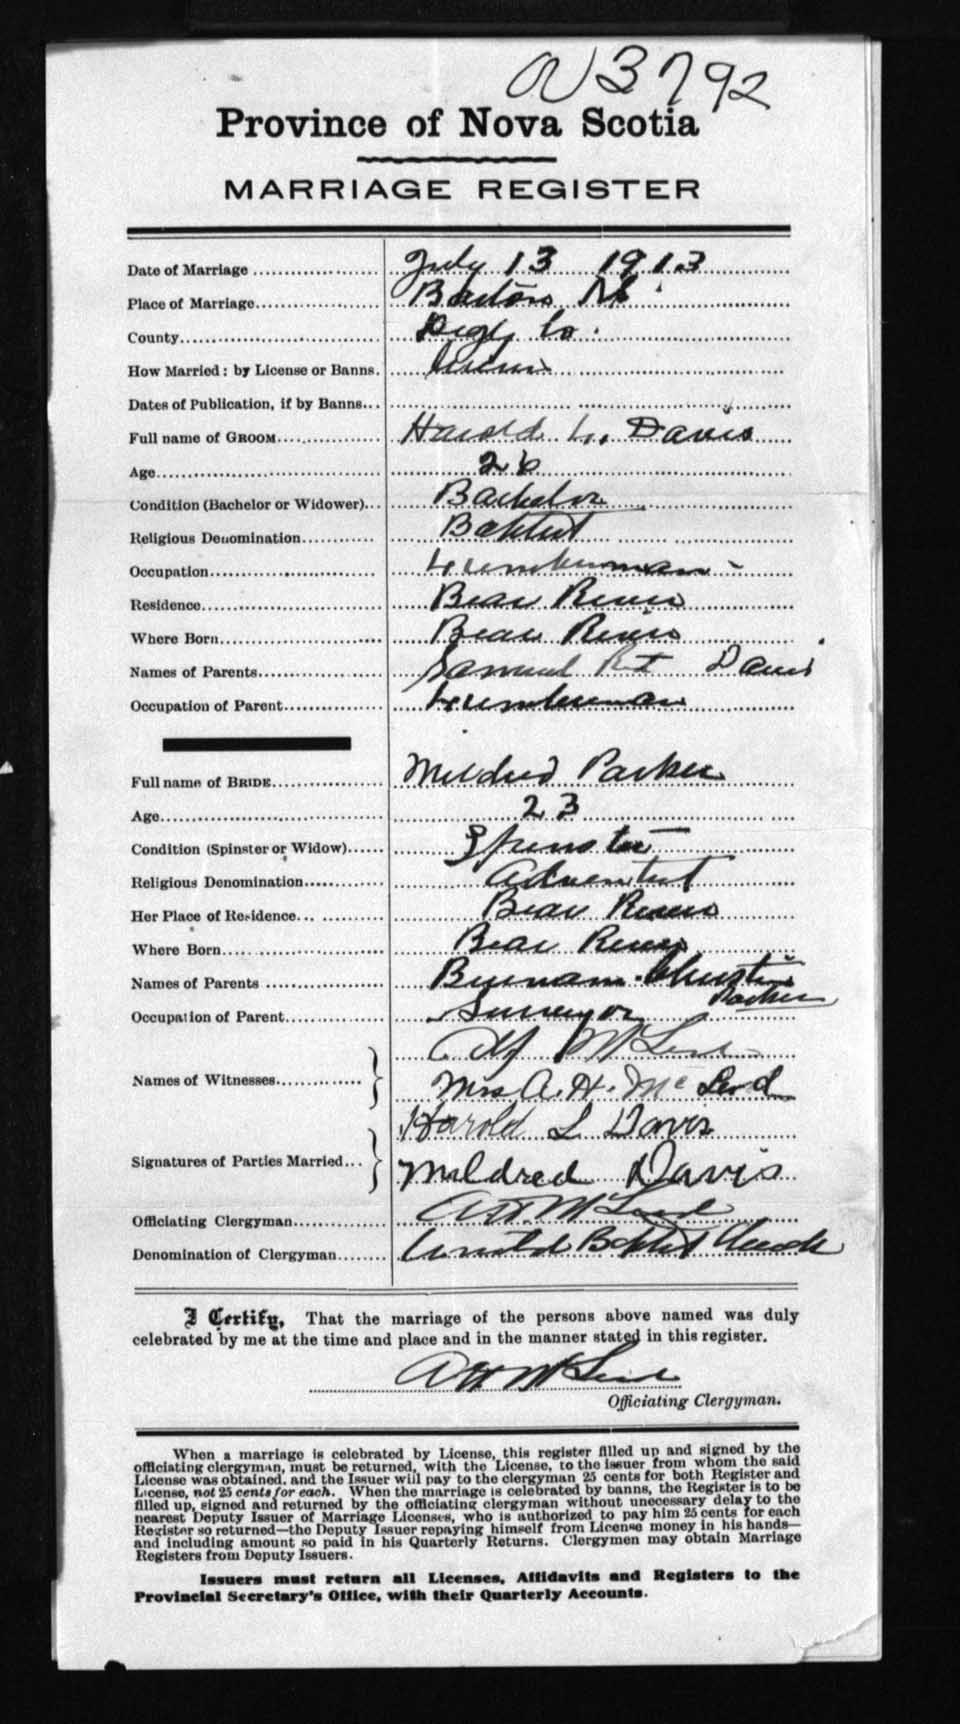 3792
Province of Nova Scotia
MARRIAGE REGISTER
Date of Marriage July 13 1913
Place of Marriage Barton NS
County Digby Co.
How Married: by License or Banns. License
Dates of Publication, if by Banns
Full name of GROOM Harold L. Davis
Age 26
Condition (Bachelor or Widower) Bachelor
Religious Denomination Baptist
Occupation Lumberman
Residence Bear River
Where Born Bear River
Names of Parents Samuel Davis
Occupation of Parent Lumberman
Full name of BRIDE Mildred Parker
Age 23
Condition (Spinster or Widow) Spinster
Religious Denomination Adventist
Her Place of Residence Bear River
Where Born Bear River
Names of Parents Parker
Occupation of Parent Surveyor
McLeod
Names of Witnesses Mrs A. H. McLeod
Harold L Davis
Signatures of Parties Married Mildred Davis
Officiating Clergyman A H McLeod
Denomination of Clergyman United Baptist Church
I Certify, That the marriage of the persons above named was duly
celebrated by me at the time and place and in the manner stated in this register.
A H McLeod
Officiating Clergyman.
When a marriage is celebrated by License, this register filled up and signed by the
officiating clergyman, must be returned, with the License, to the issuer from whom the said
License was obtained, and the Issuer will pay to the clergyman 25 cents for both Register and
License, not 25 cents for each. When the marriage is celebrated by banns, the Register is to be
filled up, signed and returned by the officiating clergyman without unnecessary delay to the
nearest Deputy Issuer of Marriage Licenses, who is authorized to pay him 25 cents for each
Register so returned—the Deputy Issuer repaying himself from License money in his hands—
and including amount so paid in his Quarterly Returns. Clergymen may obtain Marriage
Registers from Deputy Issuers.
Issuers must return all Licenses, Affidavits and Registers to the
Provincial Secretary's Office, with their Quarterly Accounts.